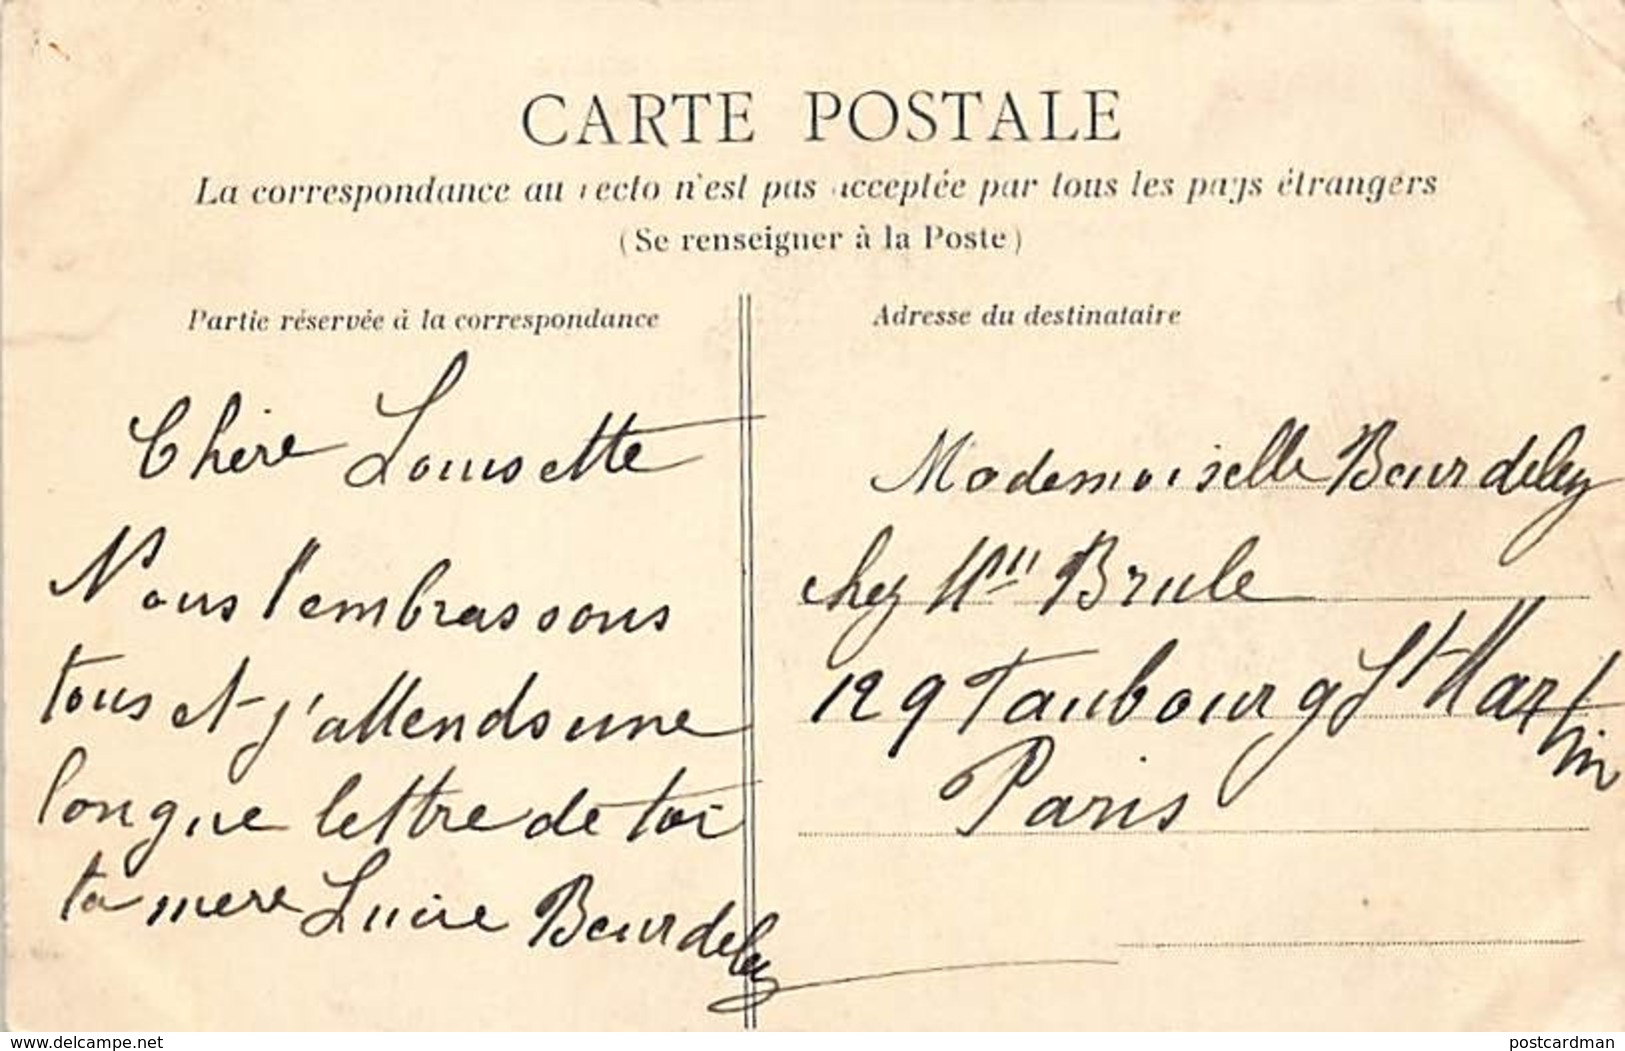 CARTE POSTALE
La correspondance au recto n'est pas acceptée par tous les pays étrangers
(Se renseigner à la Poste)
Partie réservée à la correspondance
Chère Lousette
Nous t'embrassons
tous et j'attends une
longue lettre de toi
ta mere Lucie Beurdeley
Adresse du destinataire
Mademoiselle Beurdeley
chez Mme Brule
129 Faubourg St Martin
Paris
www.delcampe.net
postcardman